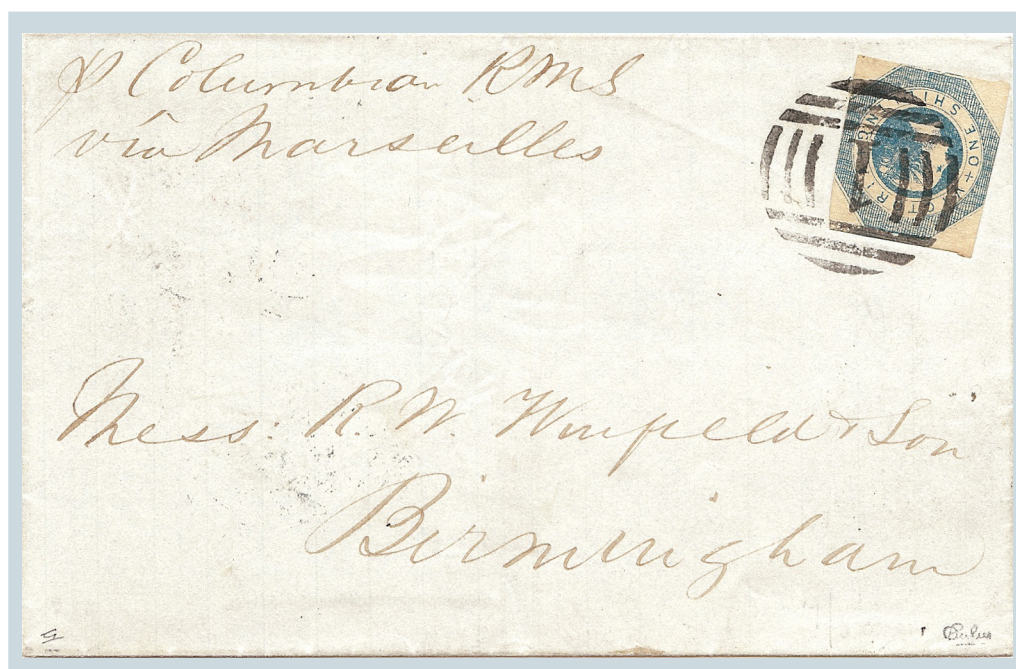 p Columbian RMS
via Marseilles
VICTORIA + ONE SHILLING
1
Mess: R. W. Winfield & Son
Birmingham